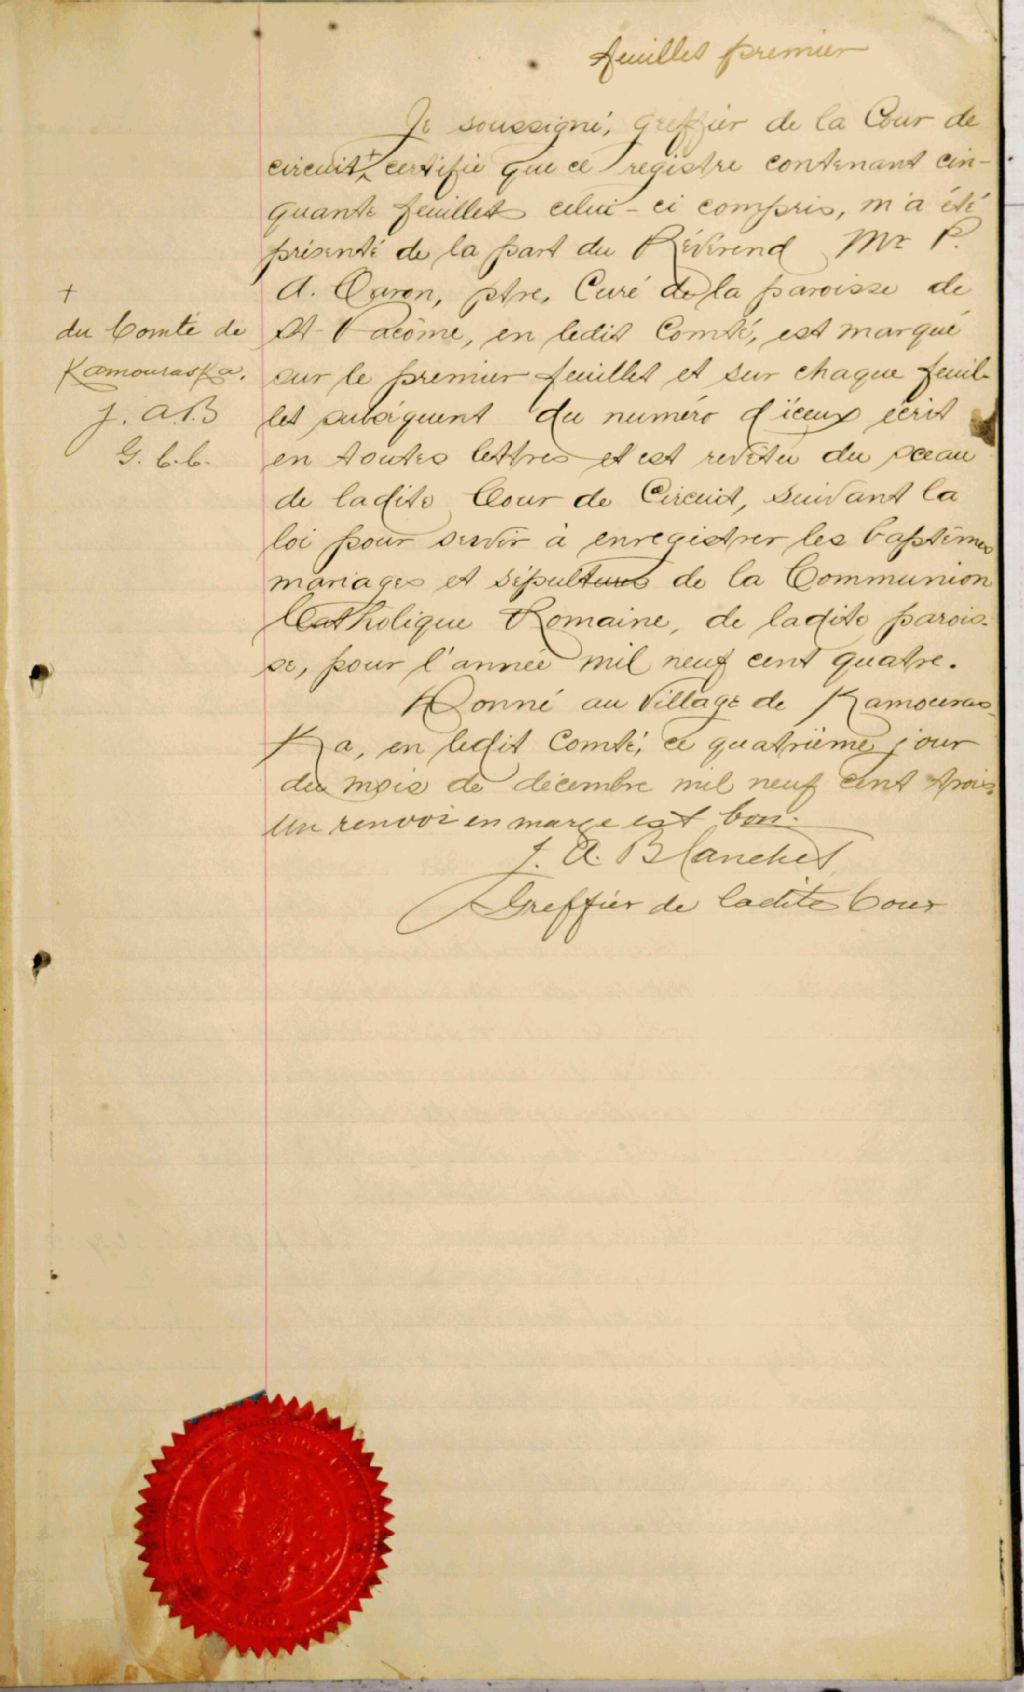 feuillet premier
Je soussigné, greffier de la Cour de
circuit,+ certifie que ce registre contenant cin-
quante feuillets celui-ci compris, m'a été
présenté de la part du Révérend Mr P.
A. Caron, ptre, Curé de la paroisse de
St Pacôme, en ledit Comté, est marqué
sur le premier feuillet et sur chaque feuil-
let subséquent du numéro d'iceux écrit
en toutes lettres et est revêtu du sceau
de ladite Cour de Circuit, suivant la
loi pour servir à enregistrer les baptêmes
mariages et sépultures de la Communion
Catholique Romaine, de ladite parois-
se, pour l'année mil neuf cent quatre.
Donné au Village de Kamouras-
Ka, en ledit Comté, ce quatrième jour
du mois de décembre mil neuf cent trois.
Un renvoi en marge est bon.
J. A. Blanchet
Greffier de ladite Cour
+
du Comté de
Kamouraska.
J. A. B
G. C. C.